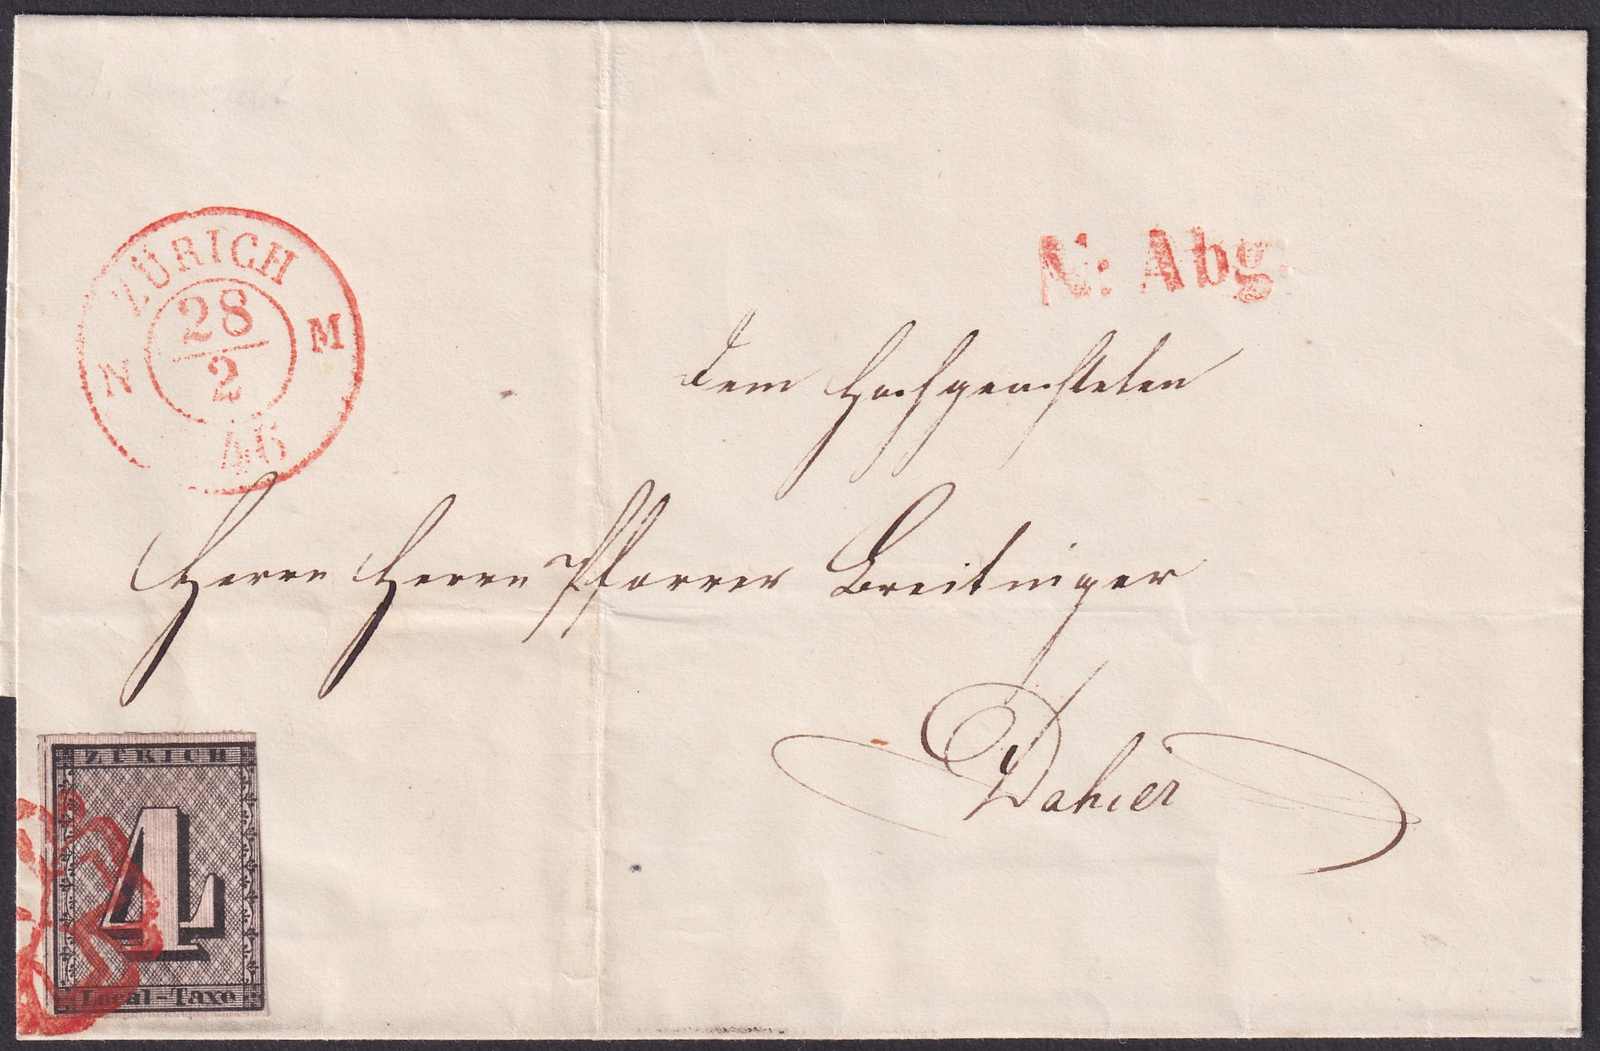 ZÜRICH
28
2
N M
46
N: Abg.
Dem Hochgeachteten
Herrn Herrn Pfarrer Breitinger
Dahier
ZÜRICH
4
Local-Taxe